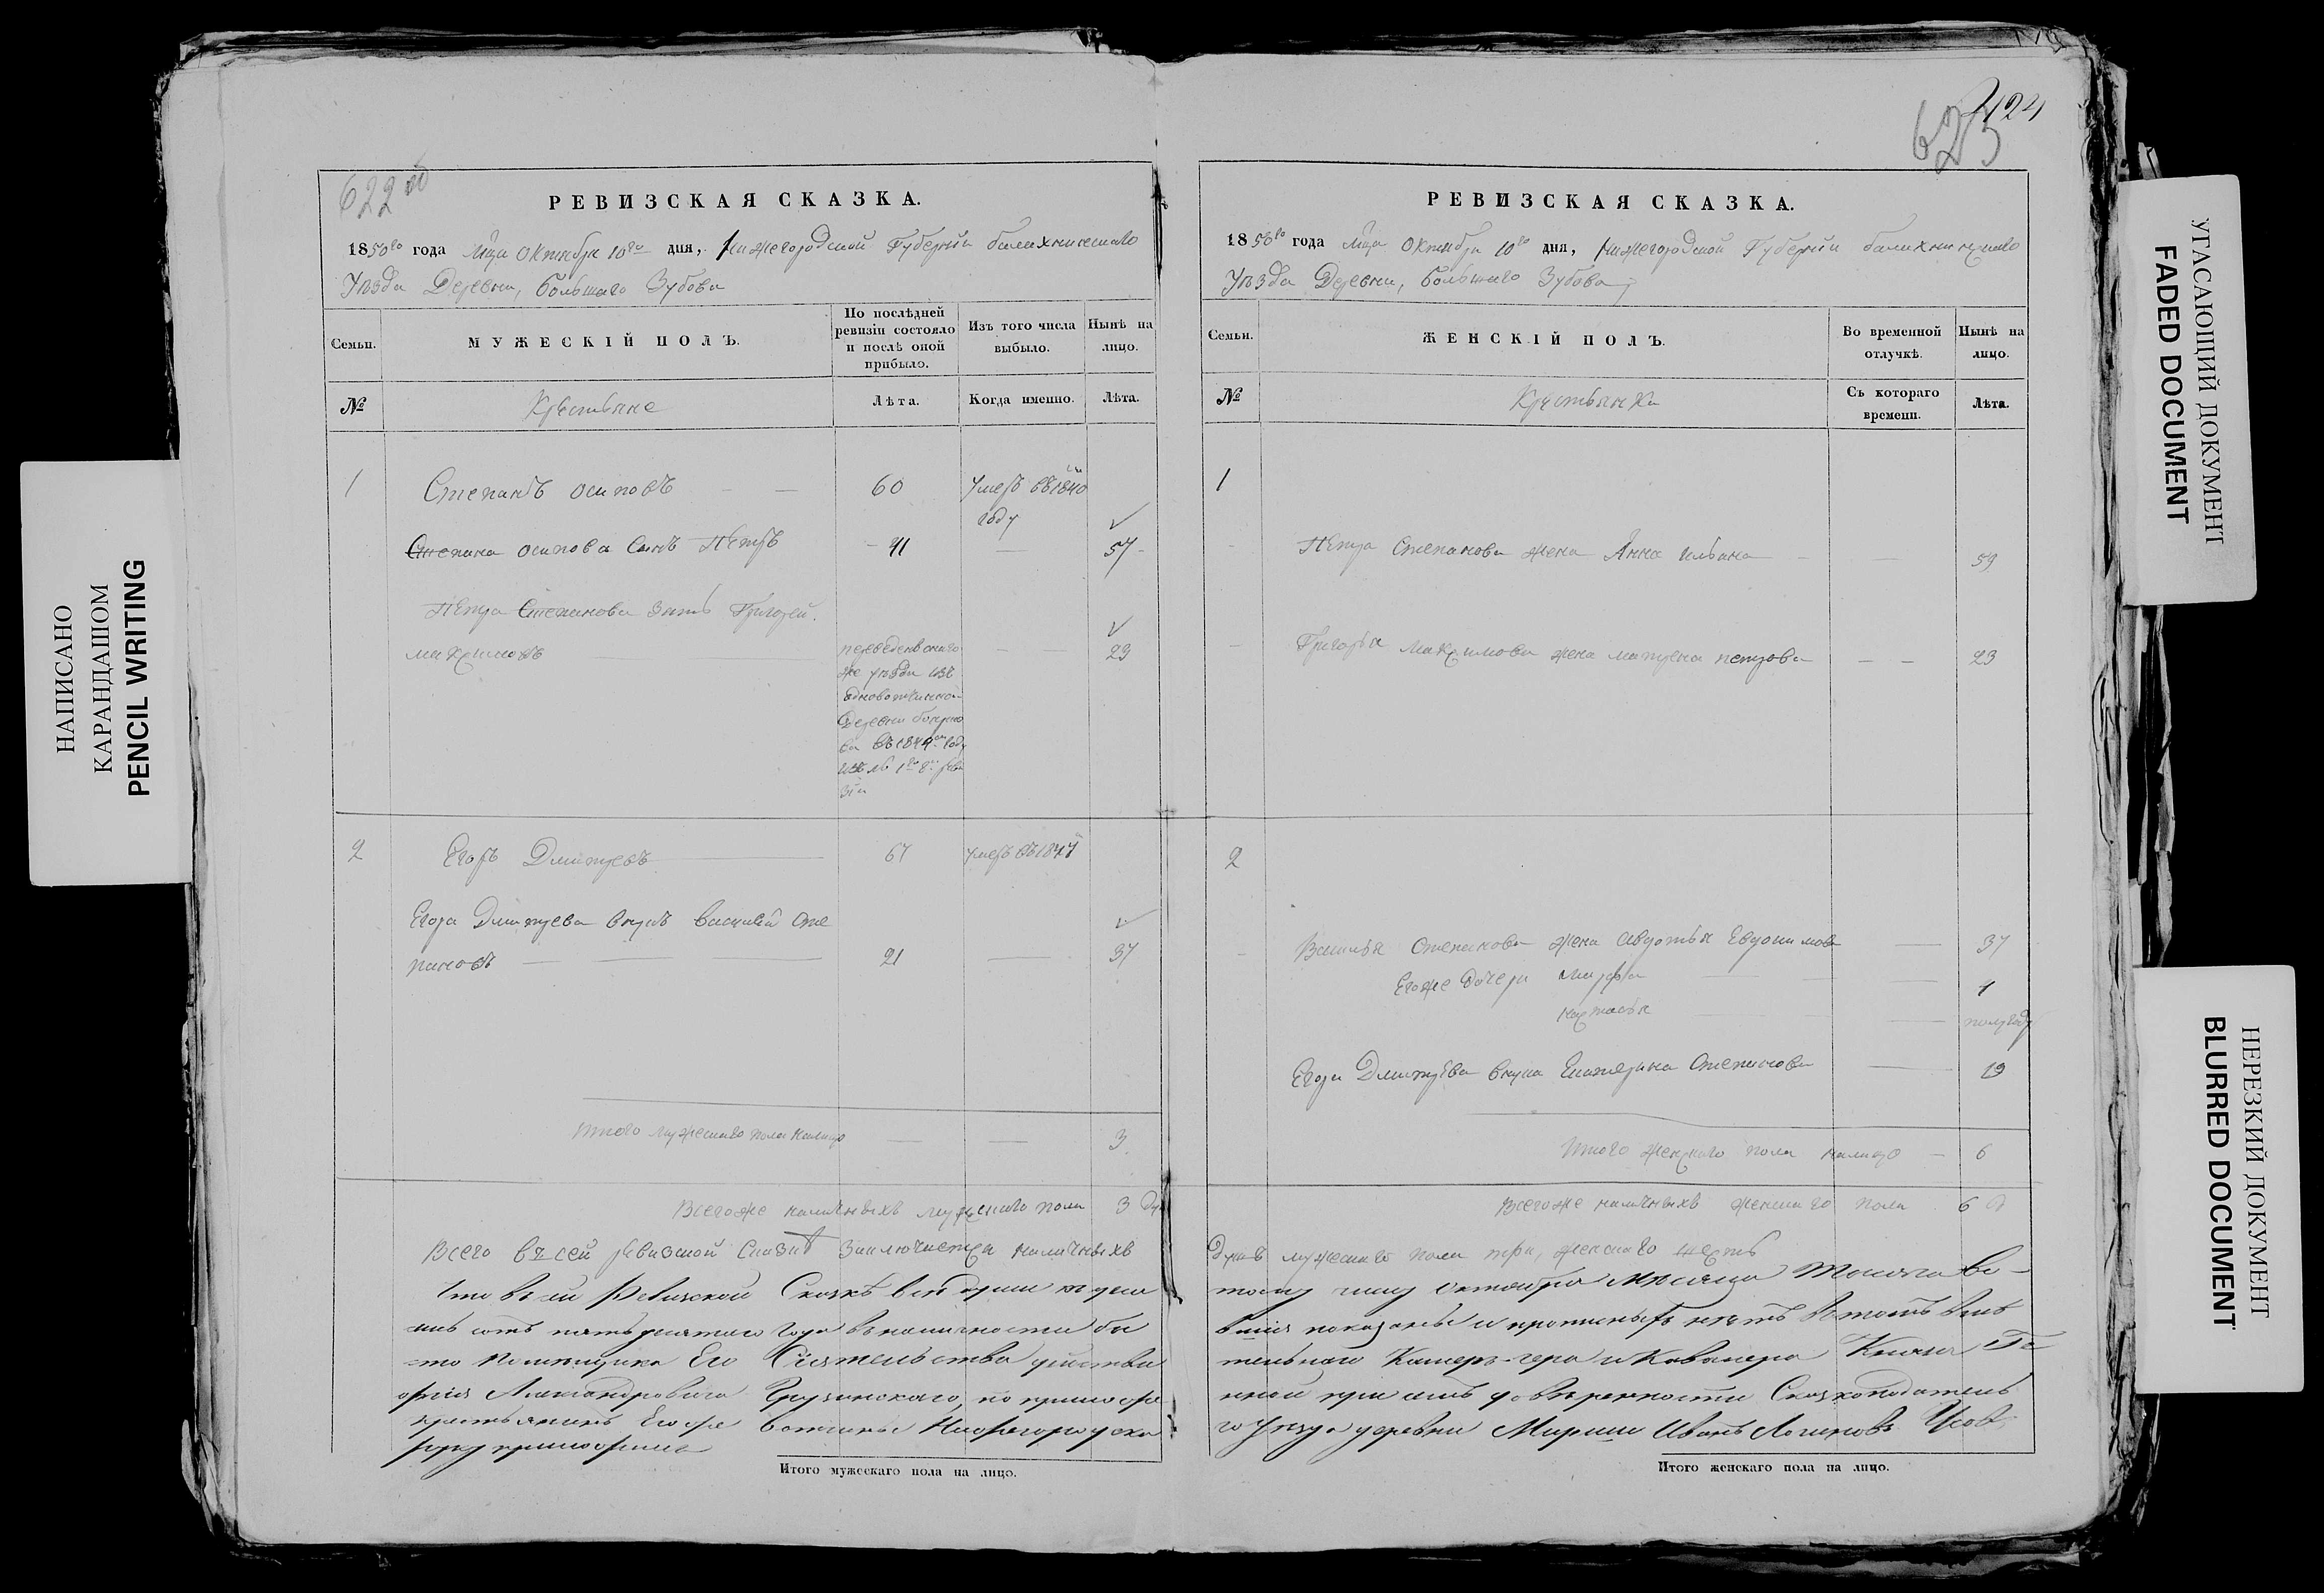 НАПИСАНО
КАРАНДАШОМ
PENCIL WRITING
622 об
РЕВИЗСКАЯ СКАЗКА.
1850го года Мца Октября 10го дня, Нижегородской Губерніи балахнинскаго
Уѣзда Деревни, большаго Зубова
Семьи.
МУЖЕСКІЙ ПОЛЪ.
По послѣдней
ревизіи состояло
и послѣ оной
прибыло.
Изъ того числа
выбыло.
Нынѣ на
лицо.
№
Крестьяне
Лѣта.
Когда именно.
Лѣта.
1
Степанъ осиповъ
60
умеръ въ 1840
году
Степана осипова сынъ Петръ
41
57
Петра Степанова зять Григорей
максимовъ
23
переведенъ онаго
же уѣзда изъ
одновотчинной
Деревни
въ 1849 году
послѣ 1й 8й реви
зіи
2
Егоръ Дмитревъ
67
умеръ въ 1847
Егора Дмитрева внукъ василей сте
пановъ
21
37
Итого мужескаго пола налицо
3
Всегоже наличныхъ мужескаго пола 3 ду
Всего въ сей ревизской сказкѣ заключается наличныхъ
Что въ сей Ревизской Сказкѣ всѣ души къ деся
сотъ пятьдесятаго Года въ наличности бы
то помѣщика Его Сіятельства действи
оргія Александровича Грузинскаго, по приложе
крестьянинъ Егоже вотчины Нижегородска
руку приложилъ
Итого мужескаго пола на лицо.
424
623
РЕВИЗСКАЯ СКАЗКА.
1850го года Мца Октября 10го дня, Нижегородской Губерніи балахнинскаго
Уѣзда Деревни, большаго Зубова
Семьи.
ЖЕНСКІЙ ПОЛЪ.
Во временной
отлучкѣ.
Нынѣ на
лицо.
№
Крестьянки
Съ котораго
времени.
Лѣта.
1
Петра Степанова жена Анна ильина
59
Григорья максимова жена матрена петрова
23
2
Василья степанова жена авдотья Евдокимова
37
Егоже дочери марфа
1
настасья
полгоду
Егора Дмитрева внука Екатерина степанова
19
Итого женскаго пола налицо 6
Всегоже наличныхъ женскаго пола 6 д
Душъ мужескаго пола три, женскаго шесть
тому числу октября Мѣсяца Тысяча во
вшія показаны и прописныхъ нѣтъ въ томъ вмѣ
тельнаго Камеръ-гера и Кавалера Князя Ге
нной при семъ довѣренности Сказкоподатель
го уѣзда деревни Мериши Иванъ Логиновъ Усов
Итого женскаго пола на лицо.
УГАСАЮЩИЙ ДОКУМЕНТ
FADED DOCUMENT
НЕРЕЗКИЙ ДОКУМЕНТ
BLURRED DOCUMENT